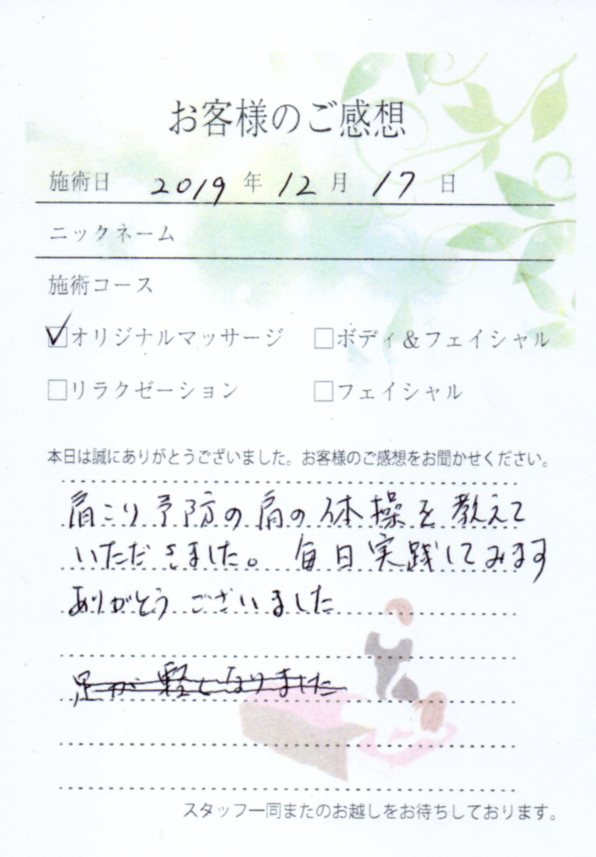 お客様のご感想
施術日 2019 年 12 月 17 日
ニックネーム
施術コース
☑オリジナルマッサージ □ボディ＆フェイシャル
□リラクゼーション □フェイシャル
本日は誠にありがとうございました。お客様のご感想をお聞かせください。
肩こり予防の肩の体操を教えて
いただきました。毎日実践してみます
ありがとうございました
足が軽くなりました
スタッフ一同またのお越しをお待ちしております。